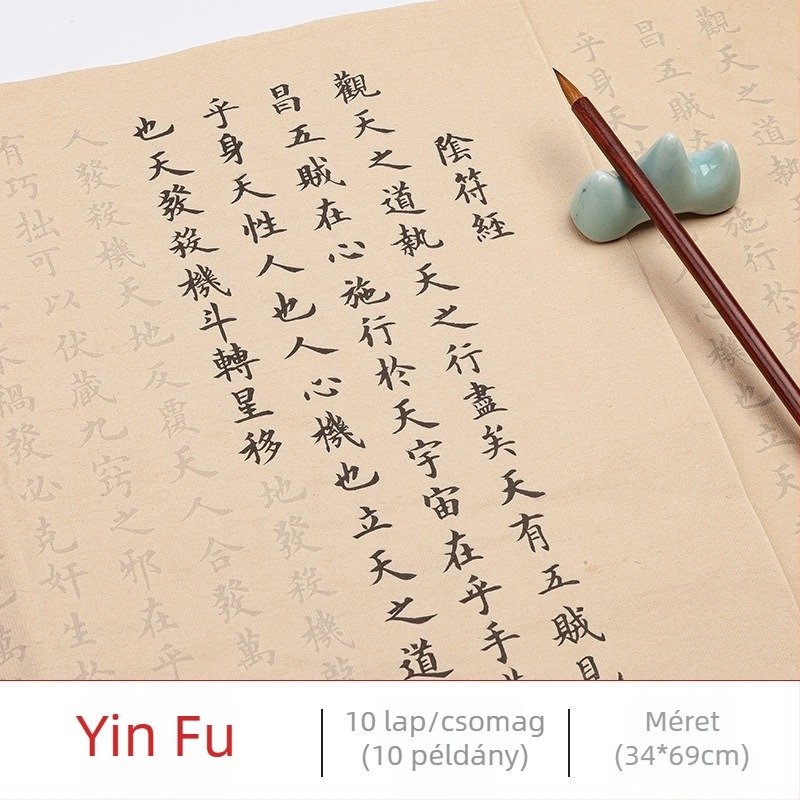 陰符經
觀天之道執天之行盡矣天有五賊見
昌五賊在心施行於天宇宙在乎手
乎身天性人也人心機也立天之道
也天發殺機斗轉星移地發殺機龍
人發殺機天地反覆天人合發萬
有巧拙可以伏藏九竅之邪在乎
禍發必克奸生於
觀天之道執
昌五賊在施行於天
乎身天人心機也立天
Yin Fu
10 lap/csomag
(10 példány)
Méret
(34*69cm)